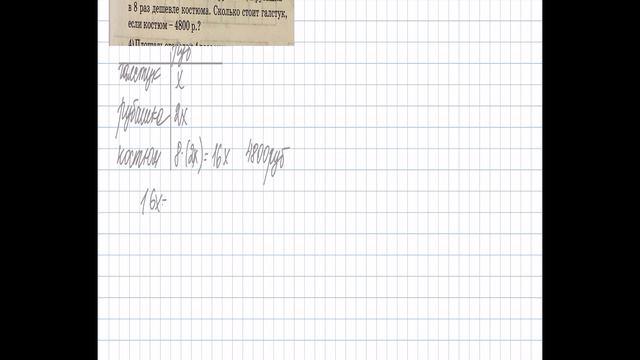 в 8 раз дешевле костюма. Сколько стоит галстук,
если костюм – 4800 р.?
руб
галстук x
рубашка 2x
костюм 8·(2x)=16x 4800руб
16x=